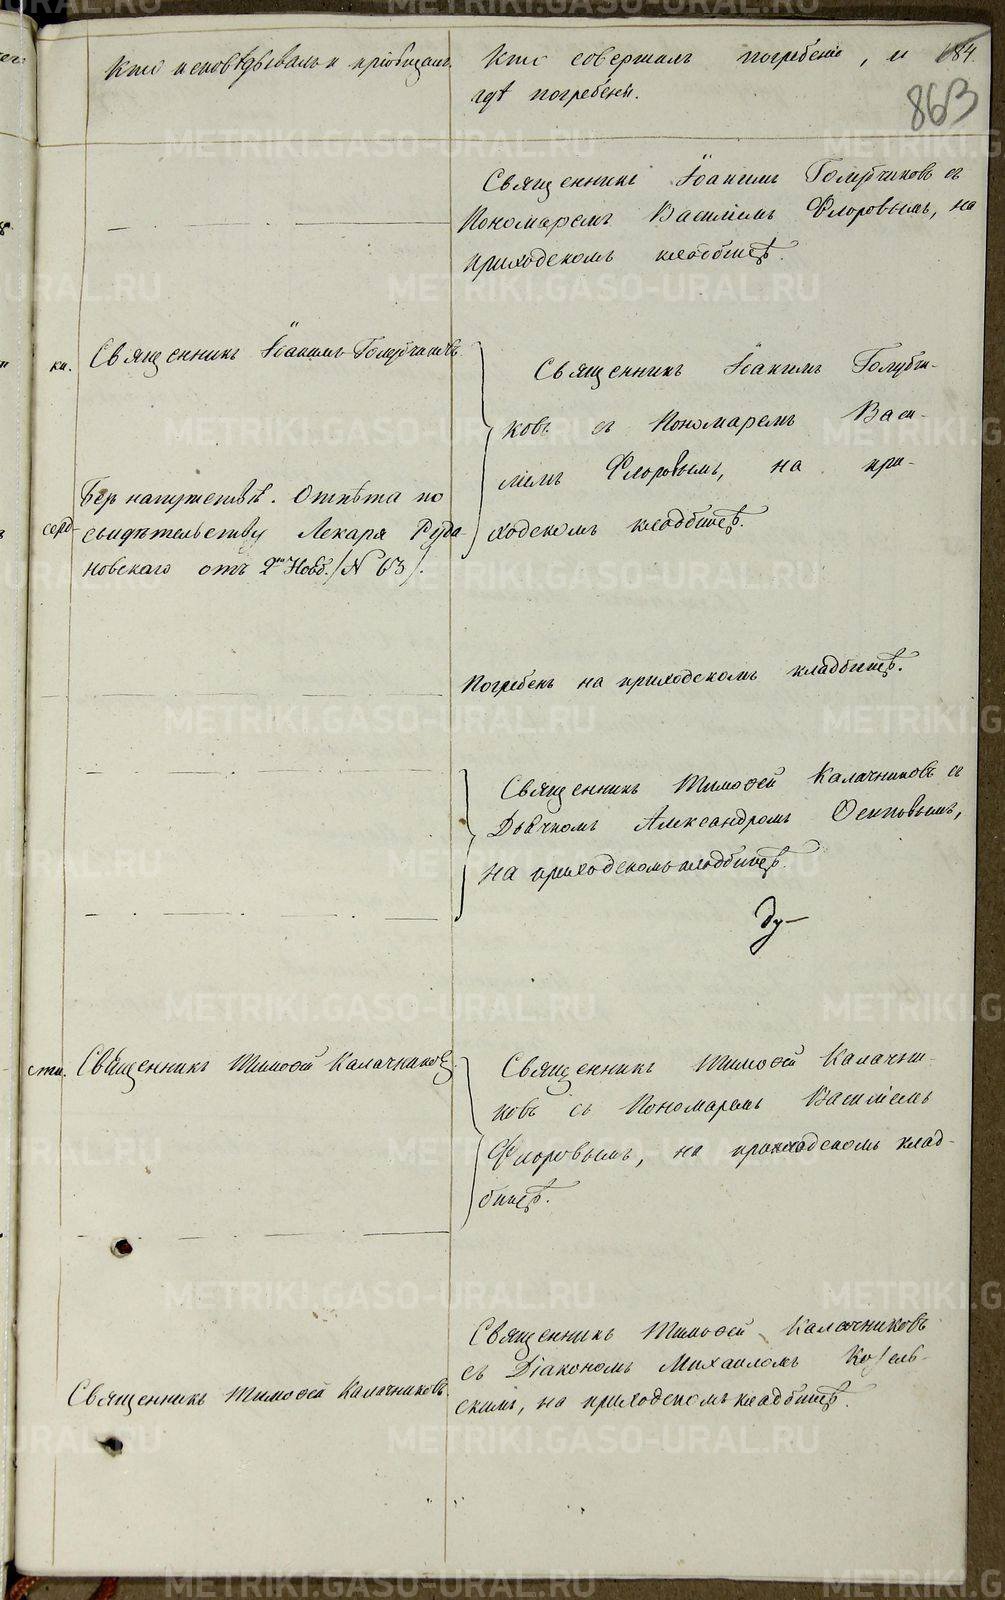 Кто исповѣдывалъ и пріобщалъ.
Кто совершалъ погребеніе, и
гдѣ погребены.
684.
863
Священникъ Іоакимъ Голубчиковъ съ
Пономаремъ Василіемъ Флоровымъ, на
приходскомъ кладбищѣ.
ки.
Священникъ Іоакимъ Голубчиковъ.
Священникъ Іоакимъ Голубчи-
ковъ съ Пономаремъ Васи-
ліемъ Флоровымъ, на при-
ходскомъ кладбищѣ.
серд-
Безъ напутствія. Отпѣта по
свидѣтельству Лекаря Руда-
новскаго отъ 2го Нояб. /№ 63/.
Погребенъ на приходскомъ кладбищѣ.
Священникъ Тимоѳей Калачниковъ съ
Дьячкомъ Александромъ Осиповымъ,
на приходскомъ кладбищѣ.
Ду-
сти.
Священникъ Тимоѳей Калачниковъ.
Священникъ Тимоѳей Калачни-
ковъ съ Пономаремъ Василіемъ
Флоровымъ, на приходскомъ клад-
бищѣ.
Священникъ Тимоѳей Калачниковъ.
Священникъ Тимоѳей Калачниковъ
съ Діакономъ Михаиломъ Козель-
скимъ, на приходскомъ кладбищѣ.
METRIKI.GASO-URAL.RU